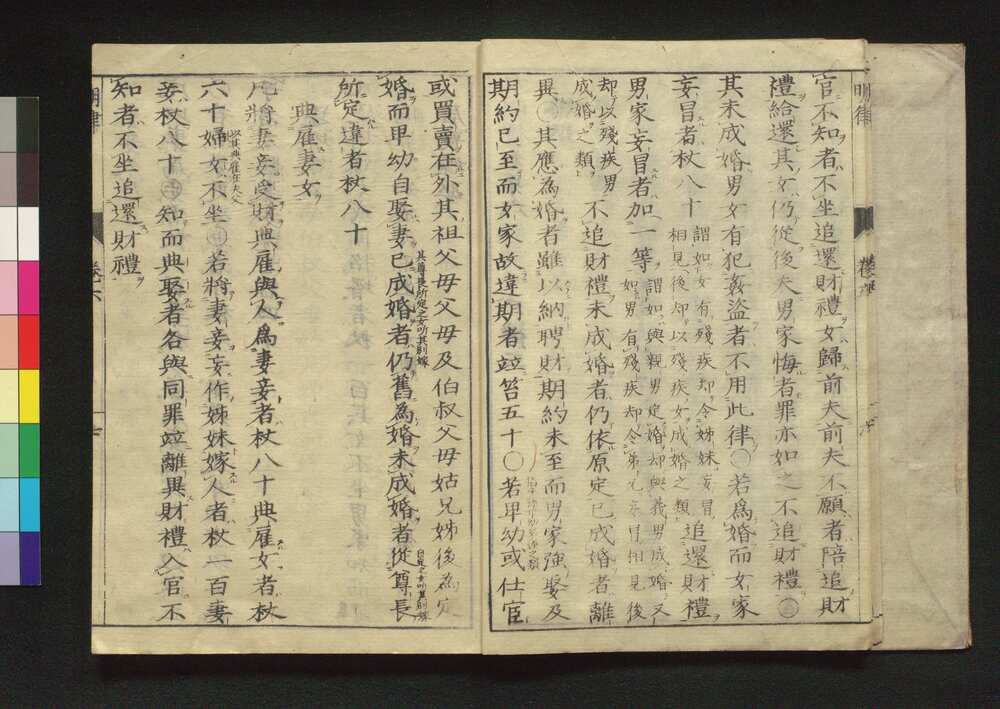 明律
官不知者不坐追還財禮女歸前夫前夫不願者陪追財
禮給還其女仍從後夫男家悔者罪亦如之不追財禮
其未成婚男女有犯姦盜者不用此律○若為婚而女家
妄冒者杖八十謂如女有殘疾却令姊妹妄冒相見後却以殘疾女成婚之類追還財禮
男家妄冒者加一等謂如與親男定婚却與義男成婚又如男有殘疾却令弟兄妄冒相見後
却以殘疾男成婚之類不追財禮未成婚者仍依原定已成婚者離
異○其應為婚者雖以納聘財期約未至而男家強娶及
期約已至而女家故違期者並笞五十○若卑幼或仕宦
或買賣在外其祖父母父母及伯叔父母姑兄姊後為定
婚而卑幼自娶妻已成婚者仍舊為婚未成婚者從尊長
所定違者杖八十
典雇妻女
凡將妻妾受財典雇與人為妻妾者杖八十典雇女者杖
六十婦女不坐○若將妻妾妄作姊妹嫁人者杖一百妻
妾杖八十○知而典娶者各與同罪並離異財禮入官不
知者不坐追還財禮
明律